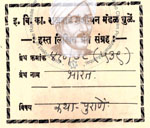 इ. वि. का. रा संशोधन मंडळ धुळें.
: हस्त लि संग्रह :
ग्रंथ क्रमांक ४८०/८ (५३९)
ग्रंथ नाम भारत.
विषय कथा-पुराणें